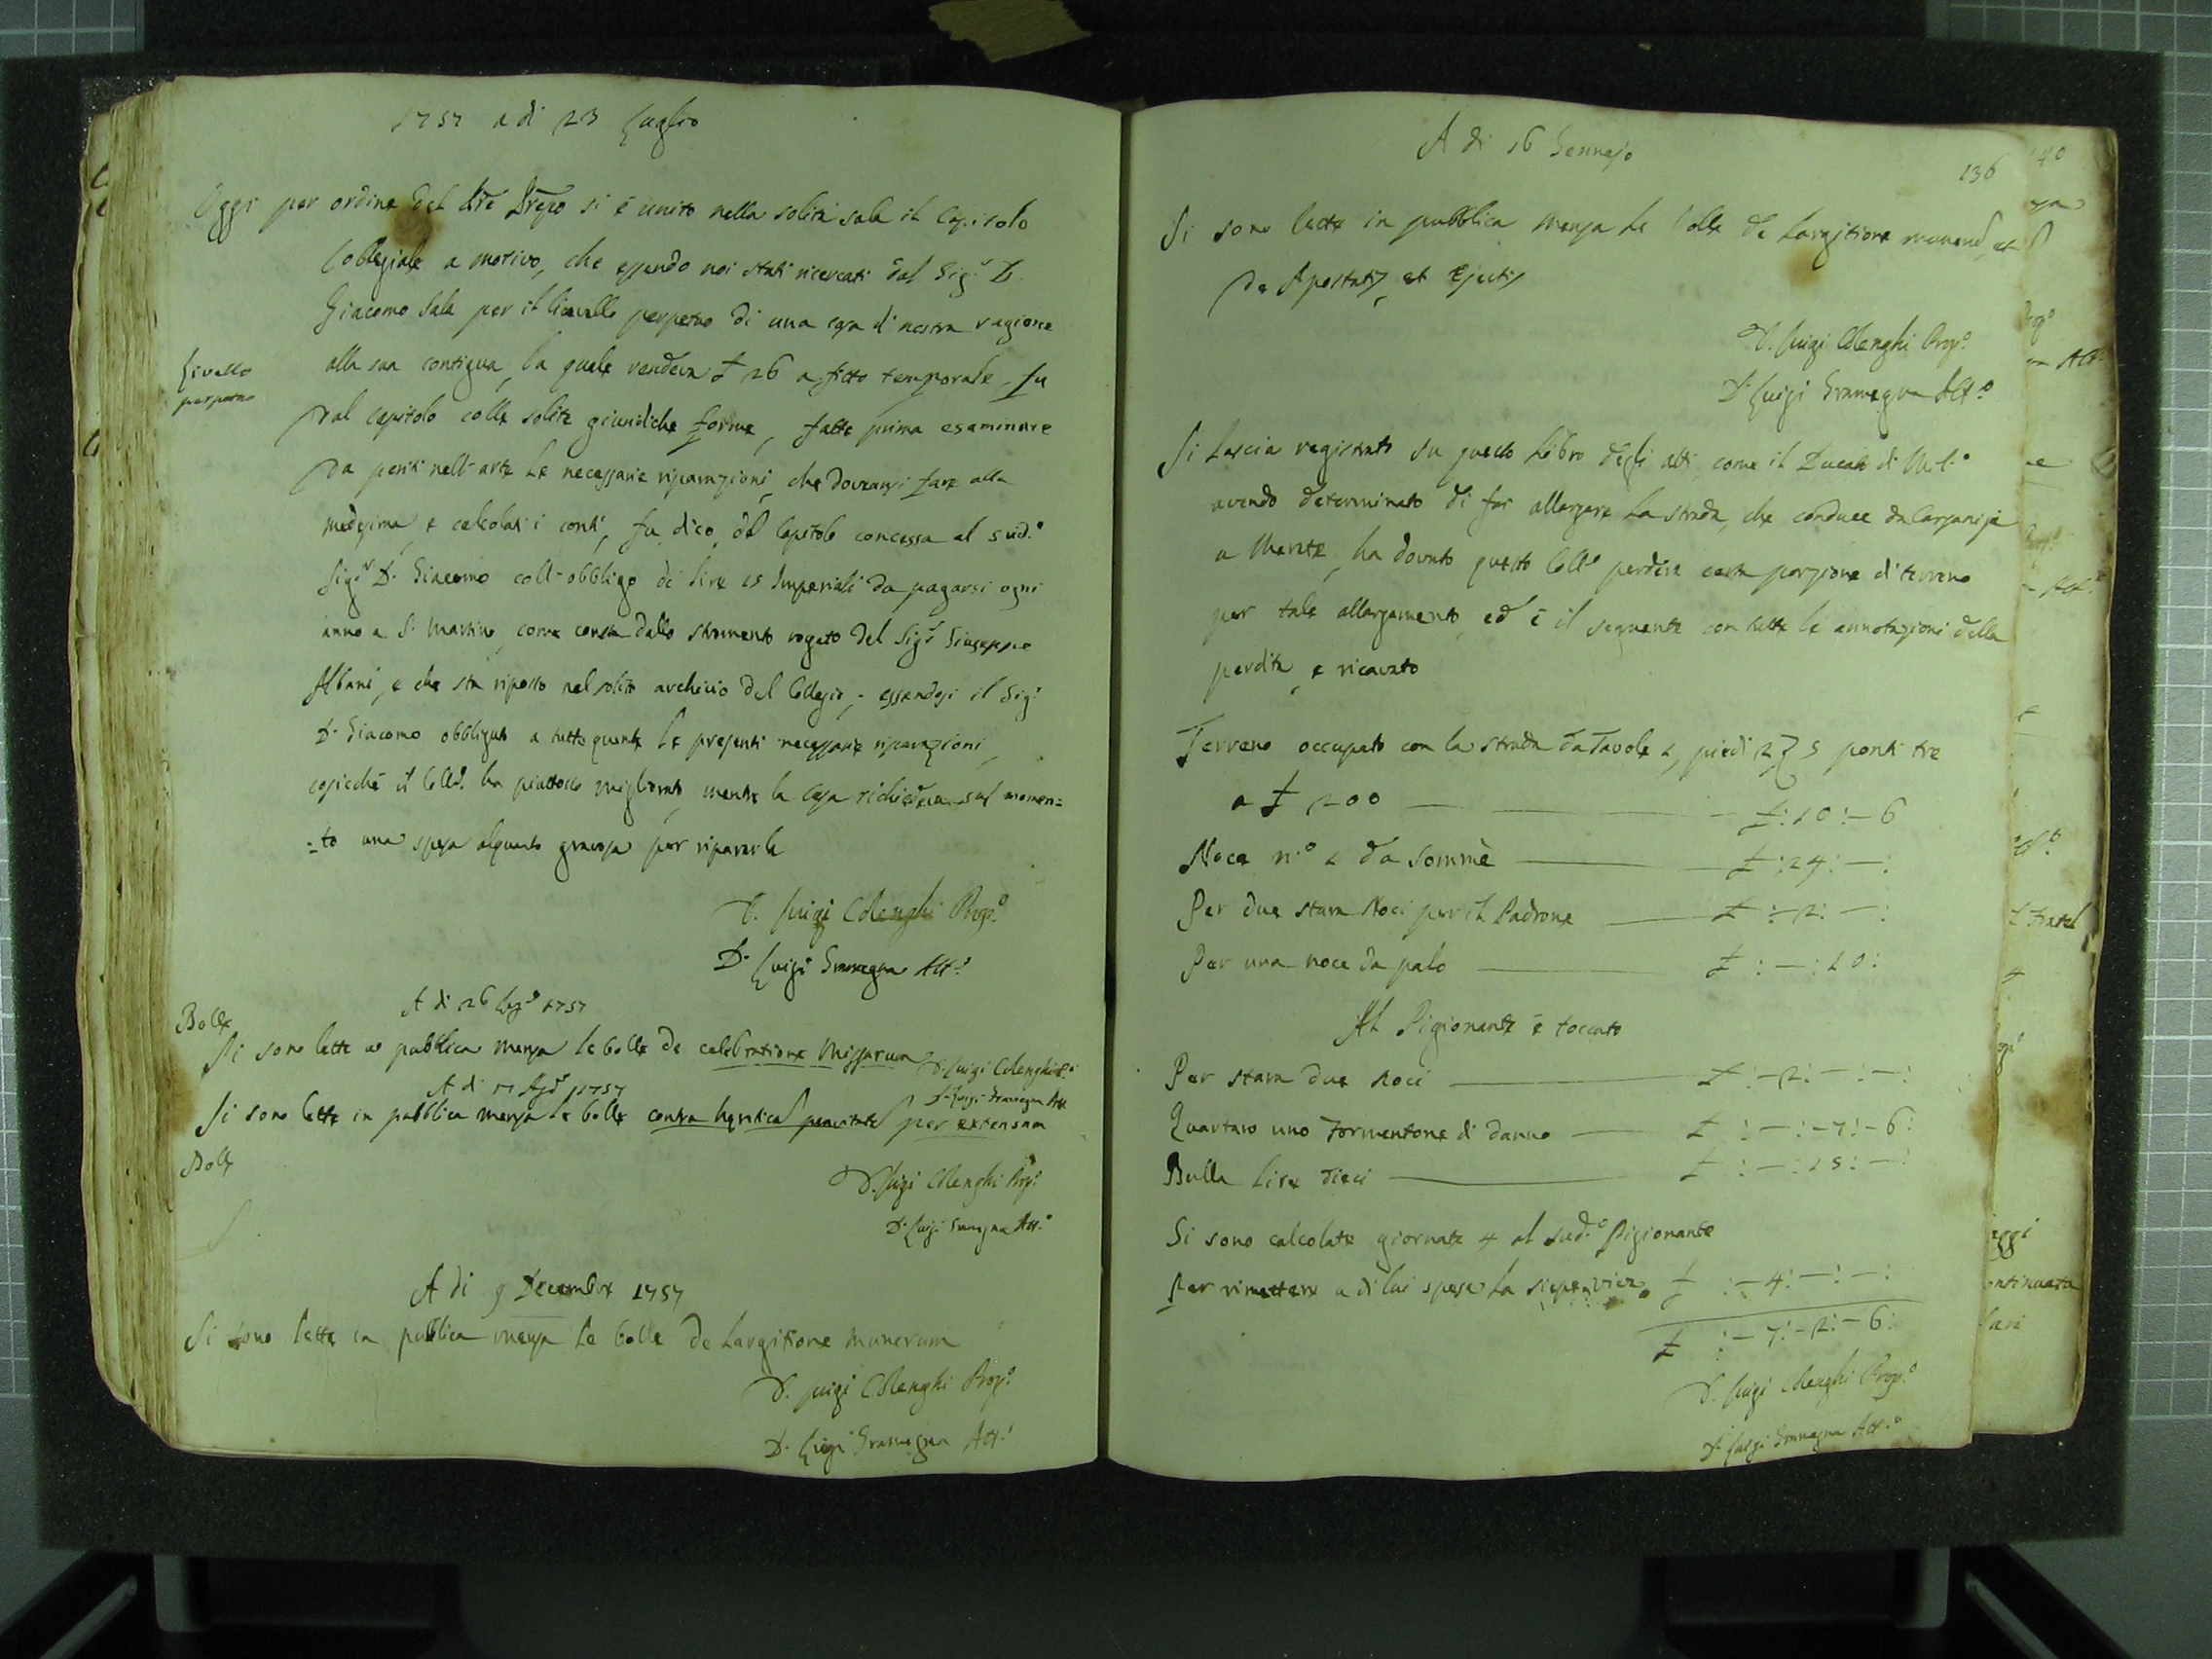 1757 a di 23 Luglio
Oggi per ordine del Pre Prepo si è unito nella solita sala il Capitolo
Collegiale a motivo, che essendo noi stati ricercati dal Sig.r D.
Giacomo Sala per il livello perpetuo di una casa di nostra ragione
alla sua contigua, la quale rendeva £ 26 a fitto temporale, fu
Livello
perpetuo
dal capitolo colle solite giuridiche forme, fatte prima esaminare
da periti nell'arte le necessarie riparazioni, che dovransi fare alla
medesima, e calcolati i conti, fu, dico, dal Capitolo concessa al sud.o
Sig.r D. Giacomo coll'obbligo di lire 15 Imperiali da pagarsi ogni
anno a S. Martino, come consta dallo stromento rogato del Sig.r Giuseppe
Albani, e che sta riposto nel solito archivio del Collegio, essendosi il Sig.r
D. Giacomo obbligato a tutte quante le presenti necessarie riparazioni,
cosicchè il Coll.o ha piuttosto migliorato, mentre la casa richiedeva sul momen=
=to una spesa alquanto gravosa per ripararla
D. Luigi Marenghi Prop.o
D. Luigi Gramegna Att.o
A di 26 1757
Bolle
Si sono lette in pubblica mensa le bolle de celebratione Missarum
D. Luigi
D. Luigi Gramegna Att.
A di 17 Ag.o 1757
Si sono lette in pubblica mensa le bolle contra heretica pravitate per extensam
Bolle
D. Luigi Prop.o
D. Luigi Gramegna Att.o
A di 9 Decembre 1757
Si sono lette in pubblica mensa le bolle de Largitione Munerum
D. Luigi Prop.o
D. Luigi Gramegna Att.o
A di 16 Gennajo
136
Si sono lette in pubblica mensa le bolle de Largitione munerum, et
de Apostatis, et Ejectis
D. Luigi Prop.o
D. Luigi Gramegna Att.o
Si lascia registrato su questo Libro degli atti, come il Ducato di Mil.o
avendo determinato di far allargare la strada, che conduce da Carsaniga
a Merate, ha dovuto questo Coll.o perdere certa porzione di terreno
per tale allargamento, ed è il seguente con tutte le annotazioni della
perdita, e ricavato
Terreno occupato con la strada da Tavole 1, piedi 2, 5 ponti tre
a £ 200 — £:10:—6
Noce n.o 1 da Sommè — £:24:—:
Per due stara Noci per il Padrone — £:—2:—:
Per una noce da palo — £:—:10:
Al Pigionante è toccato
Per stara due noci — £:—2:—:—:
Quartaro uno Formentone di danno — £:—:—7:—6:
Bulla lire dieci — £:—:15:—:
Si sono calcolate giornate 4 al sud.o Pigionante
Per rimettere a di lui spesa la siepe viva. £:—4:—:—:
£:—7:—2:—6:
D. Luigi Prop.o
D. Luigi Gramegna Att.o